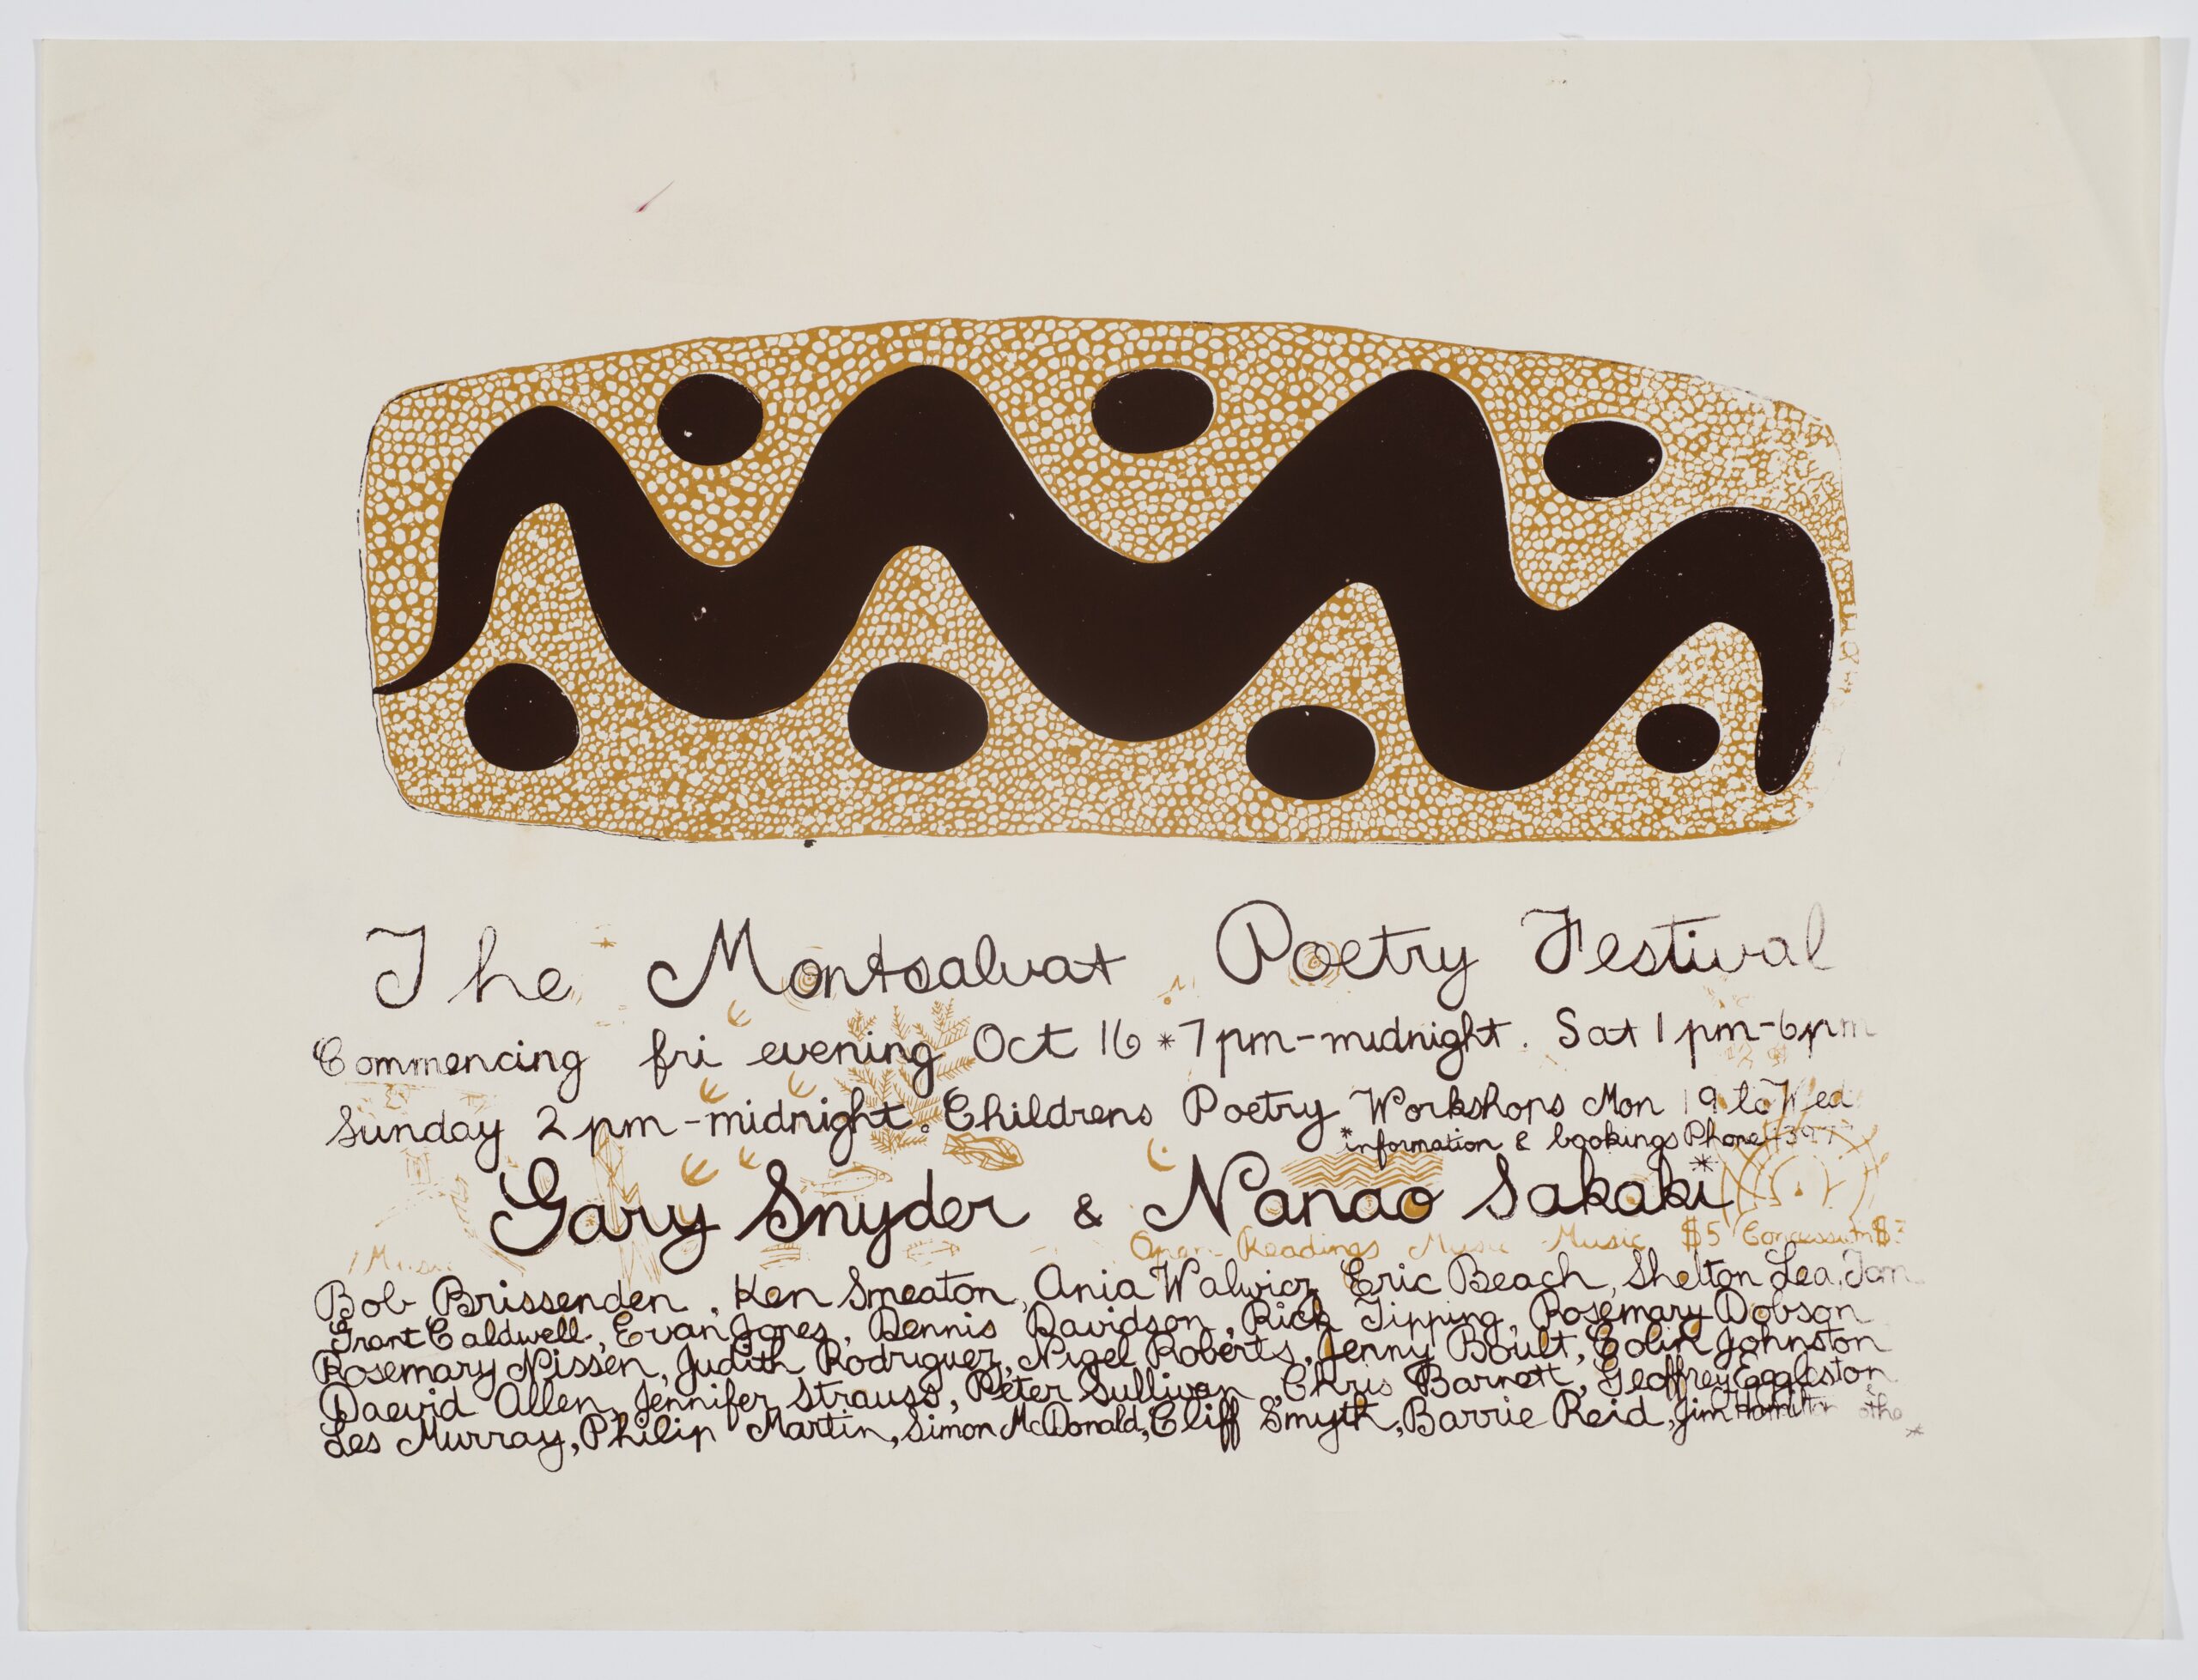 The Montsalvat Poetry Festival
Commencing fri evening Oct 16 * 7pm-midnight. Sat 1 pm-6pm
Sunday 2pm-midnight. Childrens Poetry Workshops Mon 19 to Wed
*information & bookings Phone
Gary Snyder & Nanao Sakaki*
Open Readings Music Music $5 Concession $3
Music
Bob Brissenden, Ken Smeaton, Ania Walwicz, Eric Beach, Shelton Lea,
Grant Caldwell, Evan Jones, Dennis Davidson, Rick Tipping, Rosemary Dobson
Rosemary Nissen, Judith Rodriguez, Nigel Roberts, Jenny Boult, Colin Johnston
Daevid Allen, Jennifer Strauss, Peter Sullivan, Chris Barnett, Geoffrey Eggleston
Les Murray, Philip Martin, Simon McDonald, Cliff Smyth, Barrie Reid, Jim Hamilton *